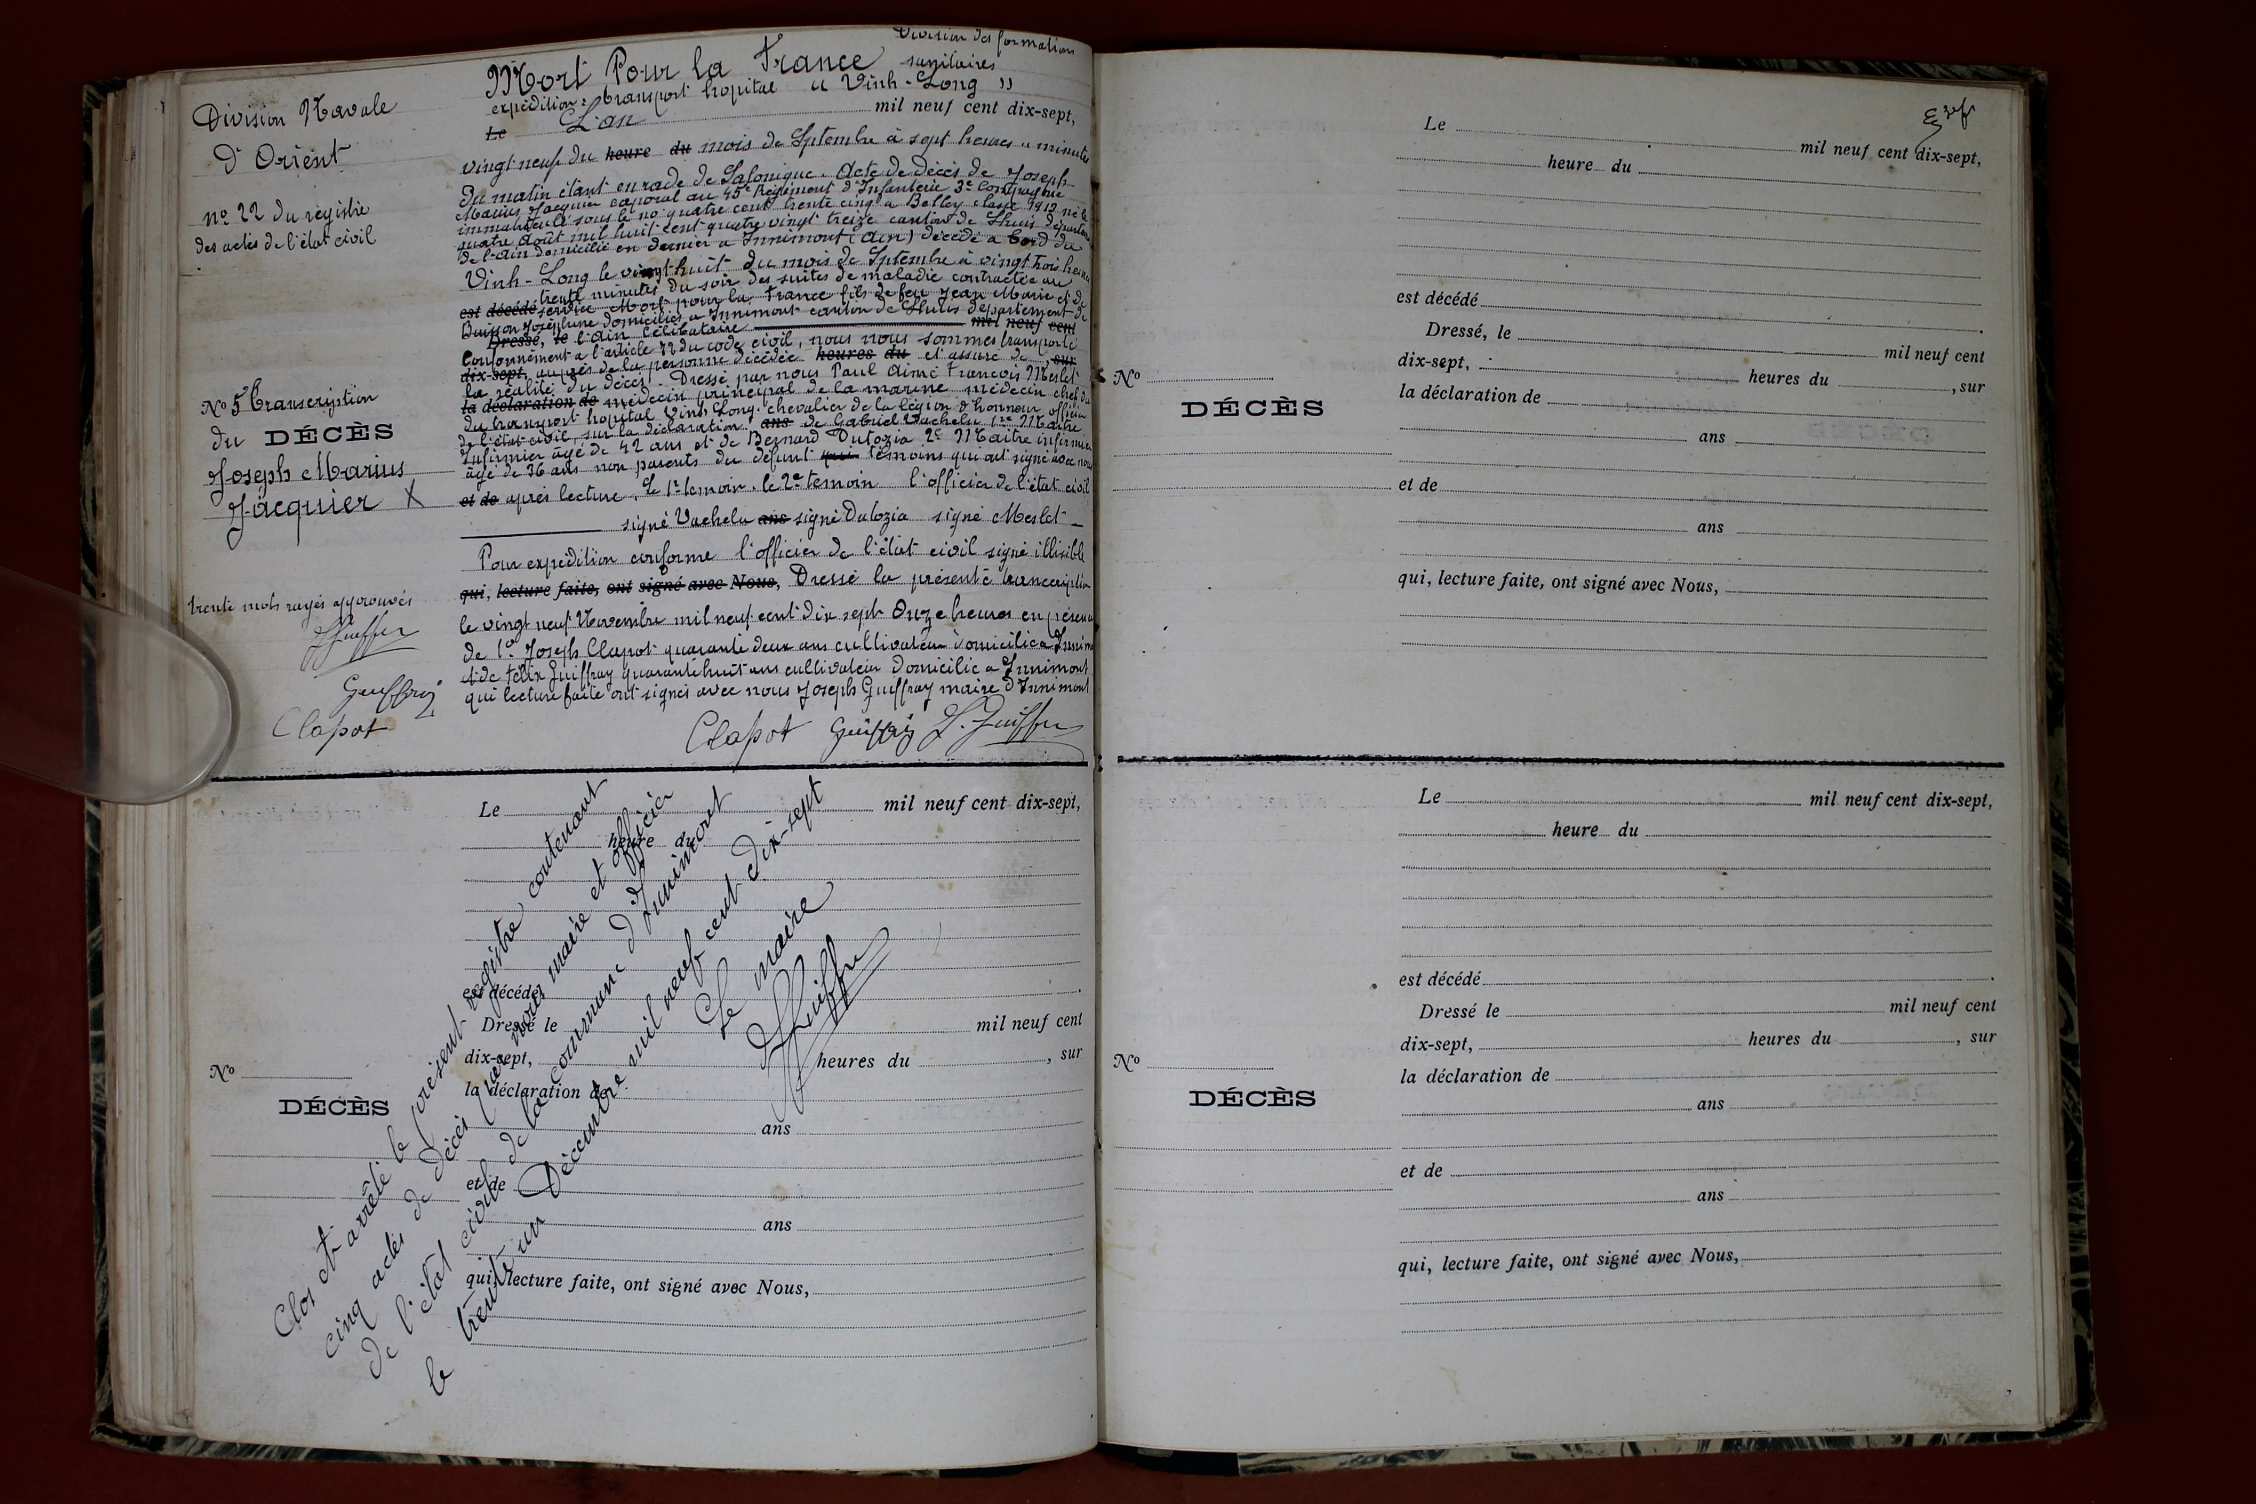 Division des formations
Mort Pour la France sanitaires
expédition : transport hopital " Vinh-Long "
Le L'an mil neuf cent dix-sept,
vingt neuf du heure du mois de Septembre à sept heures " minutes
du matin étant en rade de Salonique. Acte de Décès de Joseph
Marius Jacquier caporal au 45e Régiment d'Infanterie 3e Compagnie
immatriculé sous le no quatre cent trente cinq à Belley classe 1913 né le
quatre Août mil huit cent quatre vingt treize canton de Lhuis départem
de l'Ain domicilié en dernier à Innimont (Ain) décédé à bord du
Vinh-Long le vingt huit du mois de Septembre à vingt trois heures
trente minutes du soir des suites de maladie contractée au
est décédé service Mort pour la France fils de feu Jean Marie et de
Buisson Joséphine domiciliés à Innimont canton de Lhuis département de
Dressé, le l'Ain Célibataire mil neuf cent
Conformément à l'article 77 du code civil, nous nous sommes transporté
dix-sept, auprès de la personne décédée heures du et assuré de , sur
la réalité du décès. Dressé par nous Paul Aimé François Meslet
la déclaration de médecin principal de la marine médecin chef du
du transport hopital Vinh Long. chevalier de la légion d'honneur officier
de l'état civil, sur la déclaration ans de Gabriel Vachelu 1er Maître
Infirmier âgé de 42 ans et de Bernard Dutozia 2e Maître infirmier
âgé de 36 ans non parents du défunt qui témoins qui ont signé avec nous
et de après lecture. Le 1er temoin. le 2e temoin l'officier de l'état civil
signé Vachelu ans signé Dutozia signé Meslet
Pour expédition conforme l'officier de l'état civil signé illisible
qui, lecture faite, ont signé avec Nous, Dressé la présente transcription
le vingt neuf Novembre mil neuf cent dix sept Onze heures en présence
de 1o Joseph Clapot quarante deux ans cultivateur domicilié à Innimont
et de Félix Guiffray quarante huit ans cultivateur domicilié à Innimont
qui lecture faite ont signés avec nous Joseph Guiffray maire d'Innimont
Clapot Guiffray J. Guiffray
Division Navale
d'Orient
no 22 du registre
des actes de l'état civil
No 5 Transcription
du DÉCÈS
Joseph Marius
Jacquier X
trente mots rayés approuvés
J Guiffray
Guiffray
Clapot
Le mil neuf cent dix-sept,
heure du
est décédé
Dressé le mil neuf cent
dix-sept, heures du , sur
la déclaration de
ans
et de
ans
qui, lecture faite, ont signé avec Nous,
No
DÉCÈS
Clos et arrêté le présent registre contenant
cinq actes de décès par nous maire et officier
de l'état civil de la commune d'Innimont
le trente un Décembre mil neuf cent dix-sept
Le maire
J Guiffray
Le mil neuf cent dix-sept,
heure du
est décédé
Dressé, le mil neuf cent
dix-sept, heures du , sur
la déclaration de
ans
et de
ans
qui, lecture faite, ont signé avec Nous,
No
DÉCÈS
Le mil neuf cent dix-sept,
heure du
est décédé
Dressé le mil neuf cent
dix-sept, heures du , sur
la déclaration de
ans
et de
ans
qui, lecture faite, ont signé avec Nous,
No
DÉCÈS